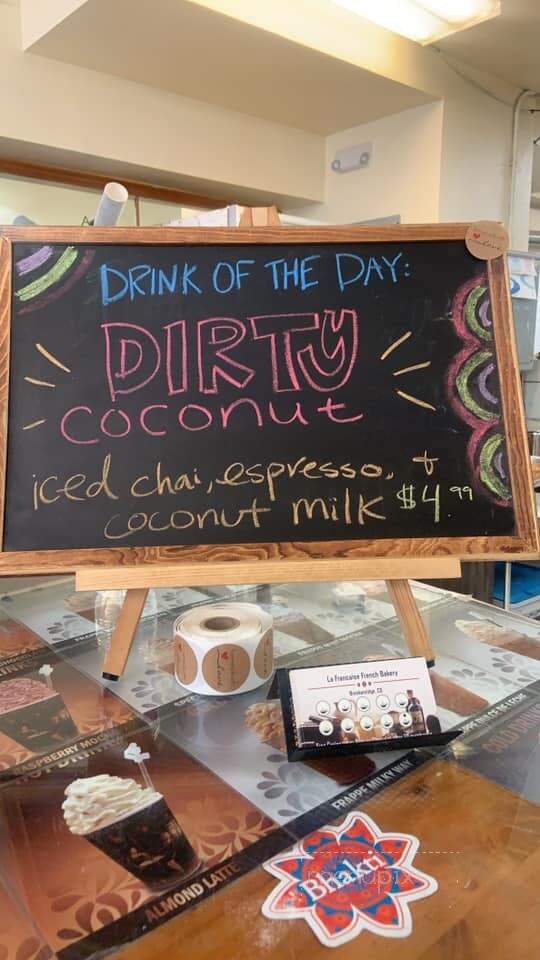 DRINK OF THE DAY:
DIRTY
coconut
iced chai, espresso, +
coconut milk $4.99
La Francaise French Bakery
Breckenridge, CO
RASPBERRY MOCHA
HOT DRINKS
FRAPPE MILKY WAY
ALMOND LATTE
Bhakti